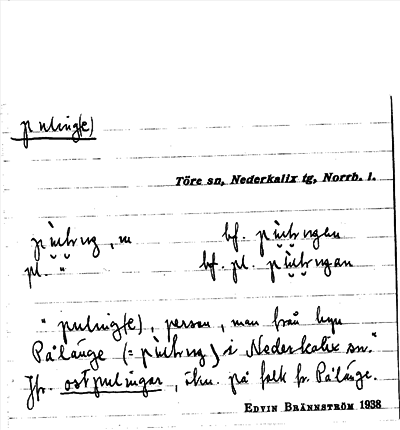 puling(e)
Töre sn, Nederkalix tg, Norrb. l.
, m bf.
pl. " bf. pl.
" puling(e), person, man från byn
Pålänge (= ) i Nederkalix sn."
Jfr. ostpulingar, ökn. på folk fr. Pålänge.
EDVIN BRÄNNSTRÖM 1938